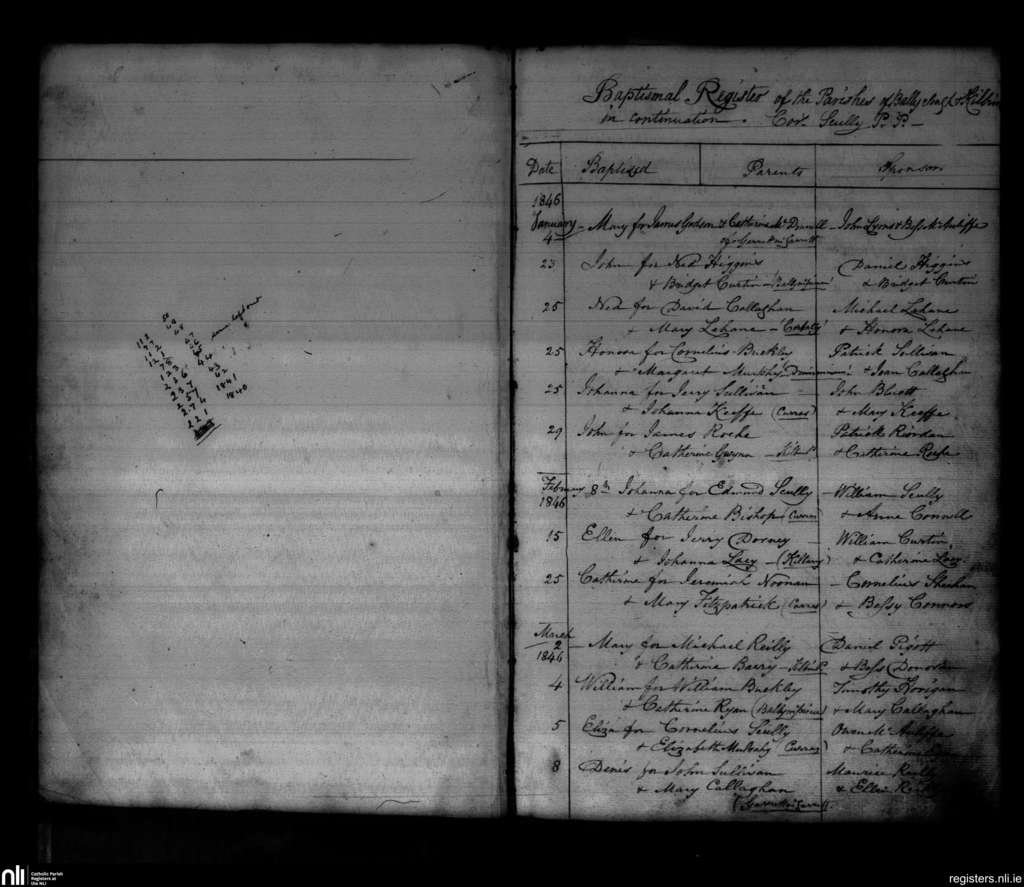 Baptismal Register of the Parishes of Bally
in continuation. Cors. Scully P. P. —
Date Baptized Parents Sponsors
1846
January 4th – Mary for James & Catherine McDonnell – John Lyons & Bess McAuliffe
23 John for Ned Higgins Daniel Higgins
& Bridget Curtin & Bridget Curtin
25 Ned for David Callaghan Michael Lehane
& Mary Lehane – & Honora Lehane
25 Honora for Cornelius Buckley Patrick Sullivan
& Margaret Murphy & Joan Callaghan
25 Johanna for Jerry Sullivan – John
& Johanna Keeffe (Curras) & Mary Keeffe
29 John for James Roche Patrick Riordan
& Catherine & Catherine Roche
February 1846 8th Johanna for Edmund Scully – William Scully
& Catherine Bishop (Curras) & Anne Connell
15 Ellen for Jerry Dorney – William Curtin
& Johanna Lacy – & Catherine Lacy
25 Catherine for Jeremiah Noonan – Cornelius Sheehan
& Mary Fitzpatrick (Curras) & Bessy Connors
March 2 1846 – Mary for Michael Reilly Daniel Pigott
& Catherine Barry – & Bess Donovan
4 William for William Buckley Timothy Horigan
& Catherine Ryan & Mary Callaghan
5 Eliza for Cornelius Scully Owen McAuliffe
& Elizabeth Mulcahy & Catherine
8 Denis for John Sullivan Maurice Reilly
& Mary Callaghan & Ellen
50
49
48
47
46
45
44
43
42
1841
1840
113
77
112
121
75
123
226
237
257
274
221
nli Catholic Parish
Registers at
the NLI
registers.nli.ie